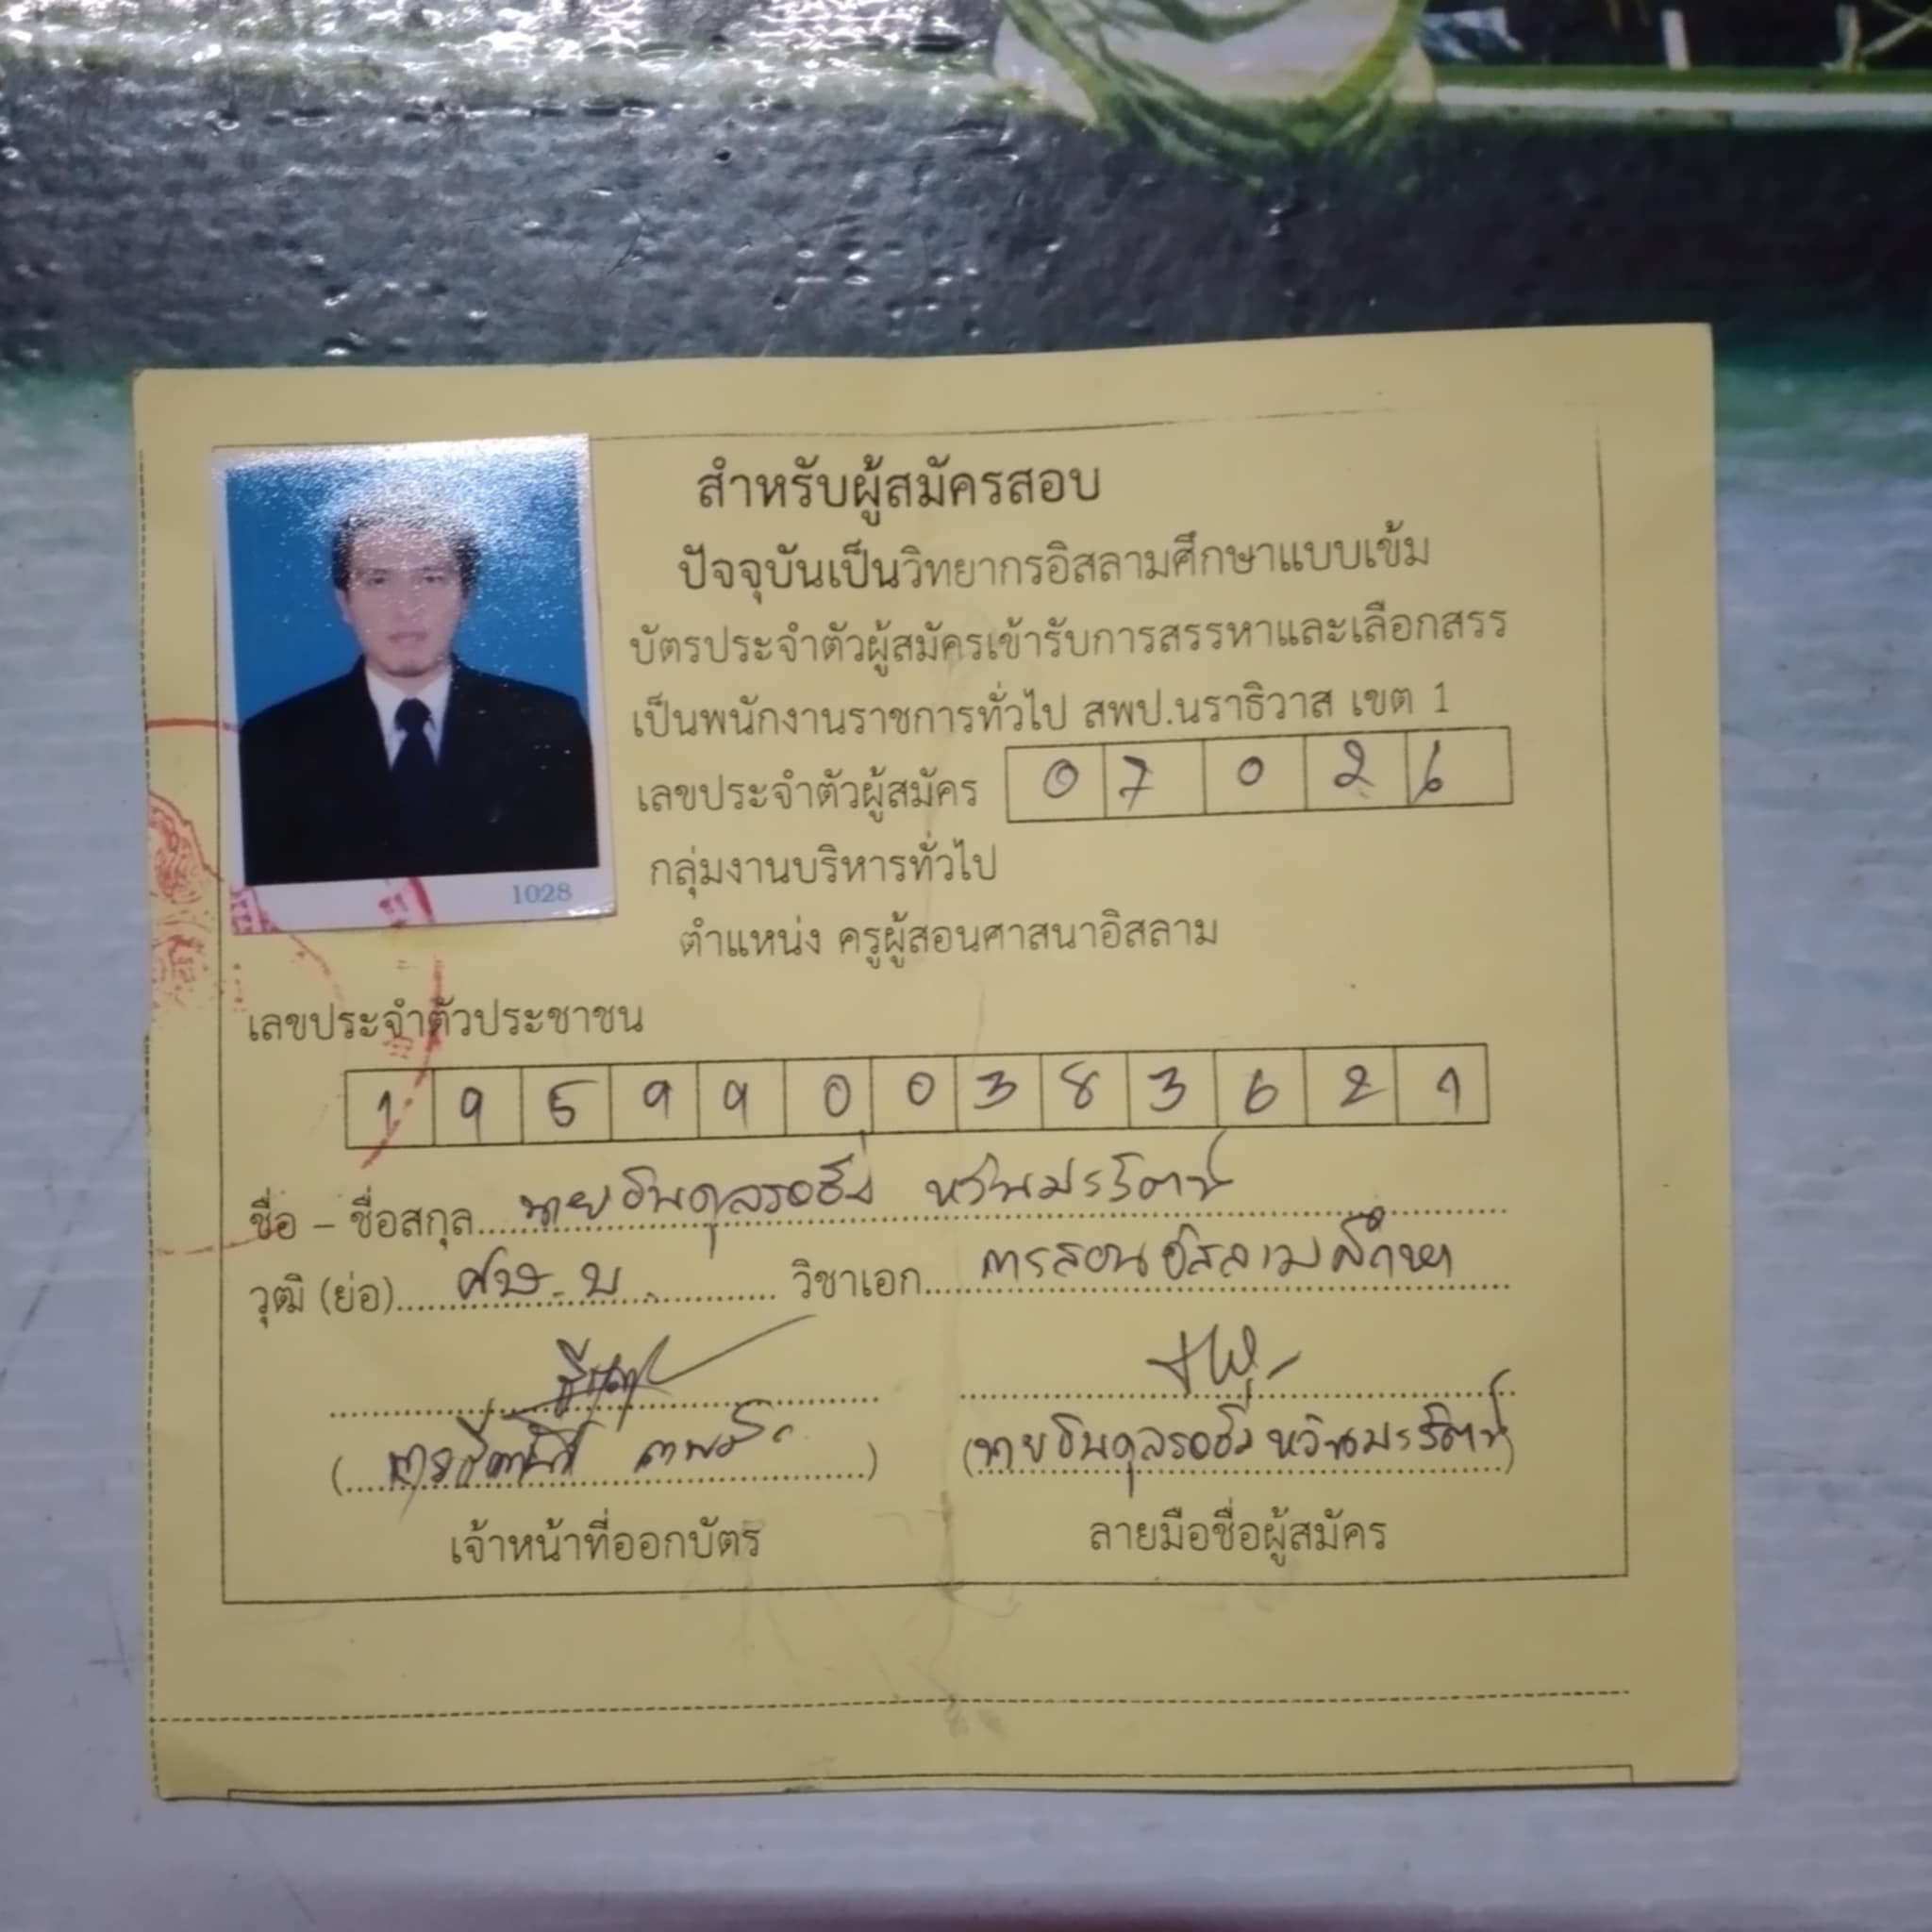 สำหรับผู้สมัครสอบ
ปัจจุบันเป็นวิทยากรอิสลามศึกษาแบบเข้ม
บัตรประจำตัวผู้สมัครเข้ารับการสรรหาและเลือกสรร
เป็นพนักงานราชการทั่วไป สพป.นราธิวาส เขต 1
เลขประจำตัวผู้สมัคร 0 7 0 2 6
กลุ่มงานบริหารทั่วไป
1028
ตำแหน่ง ครูผู้สอนศาสนาอิสลาม
เลขประจำตัวประชาชน
1 9 5 9 9 0 0 3 8 3 6 2 1
ชื่อ – ชื่อสกุล นาย
วุฒิ (ย่อ) ศษ.บ. วิชาเอก การสอนอิสลามศึกษา
( ) (นาย )
เจ้าหน้าที่ออกบัตร ลายมือชื่อผู้สมัคร